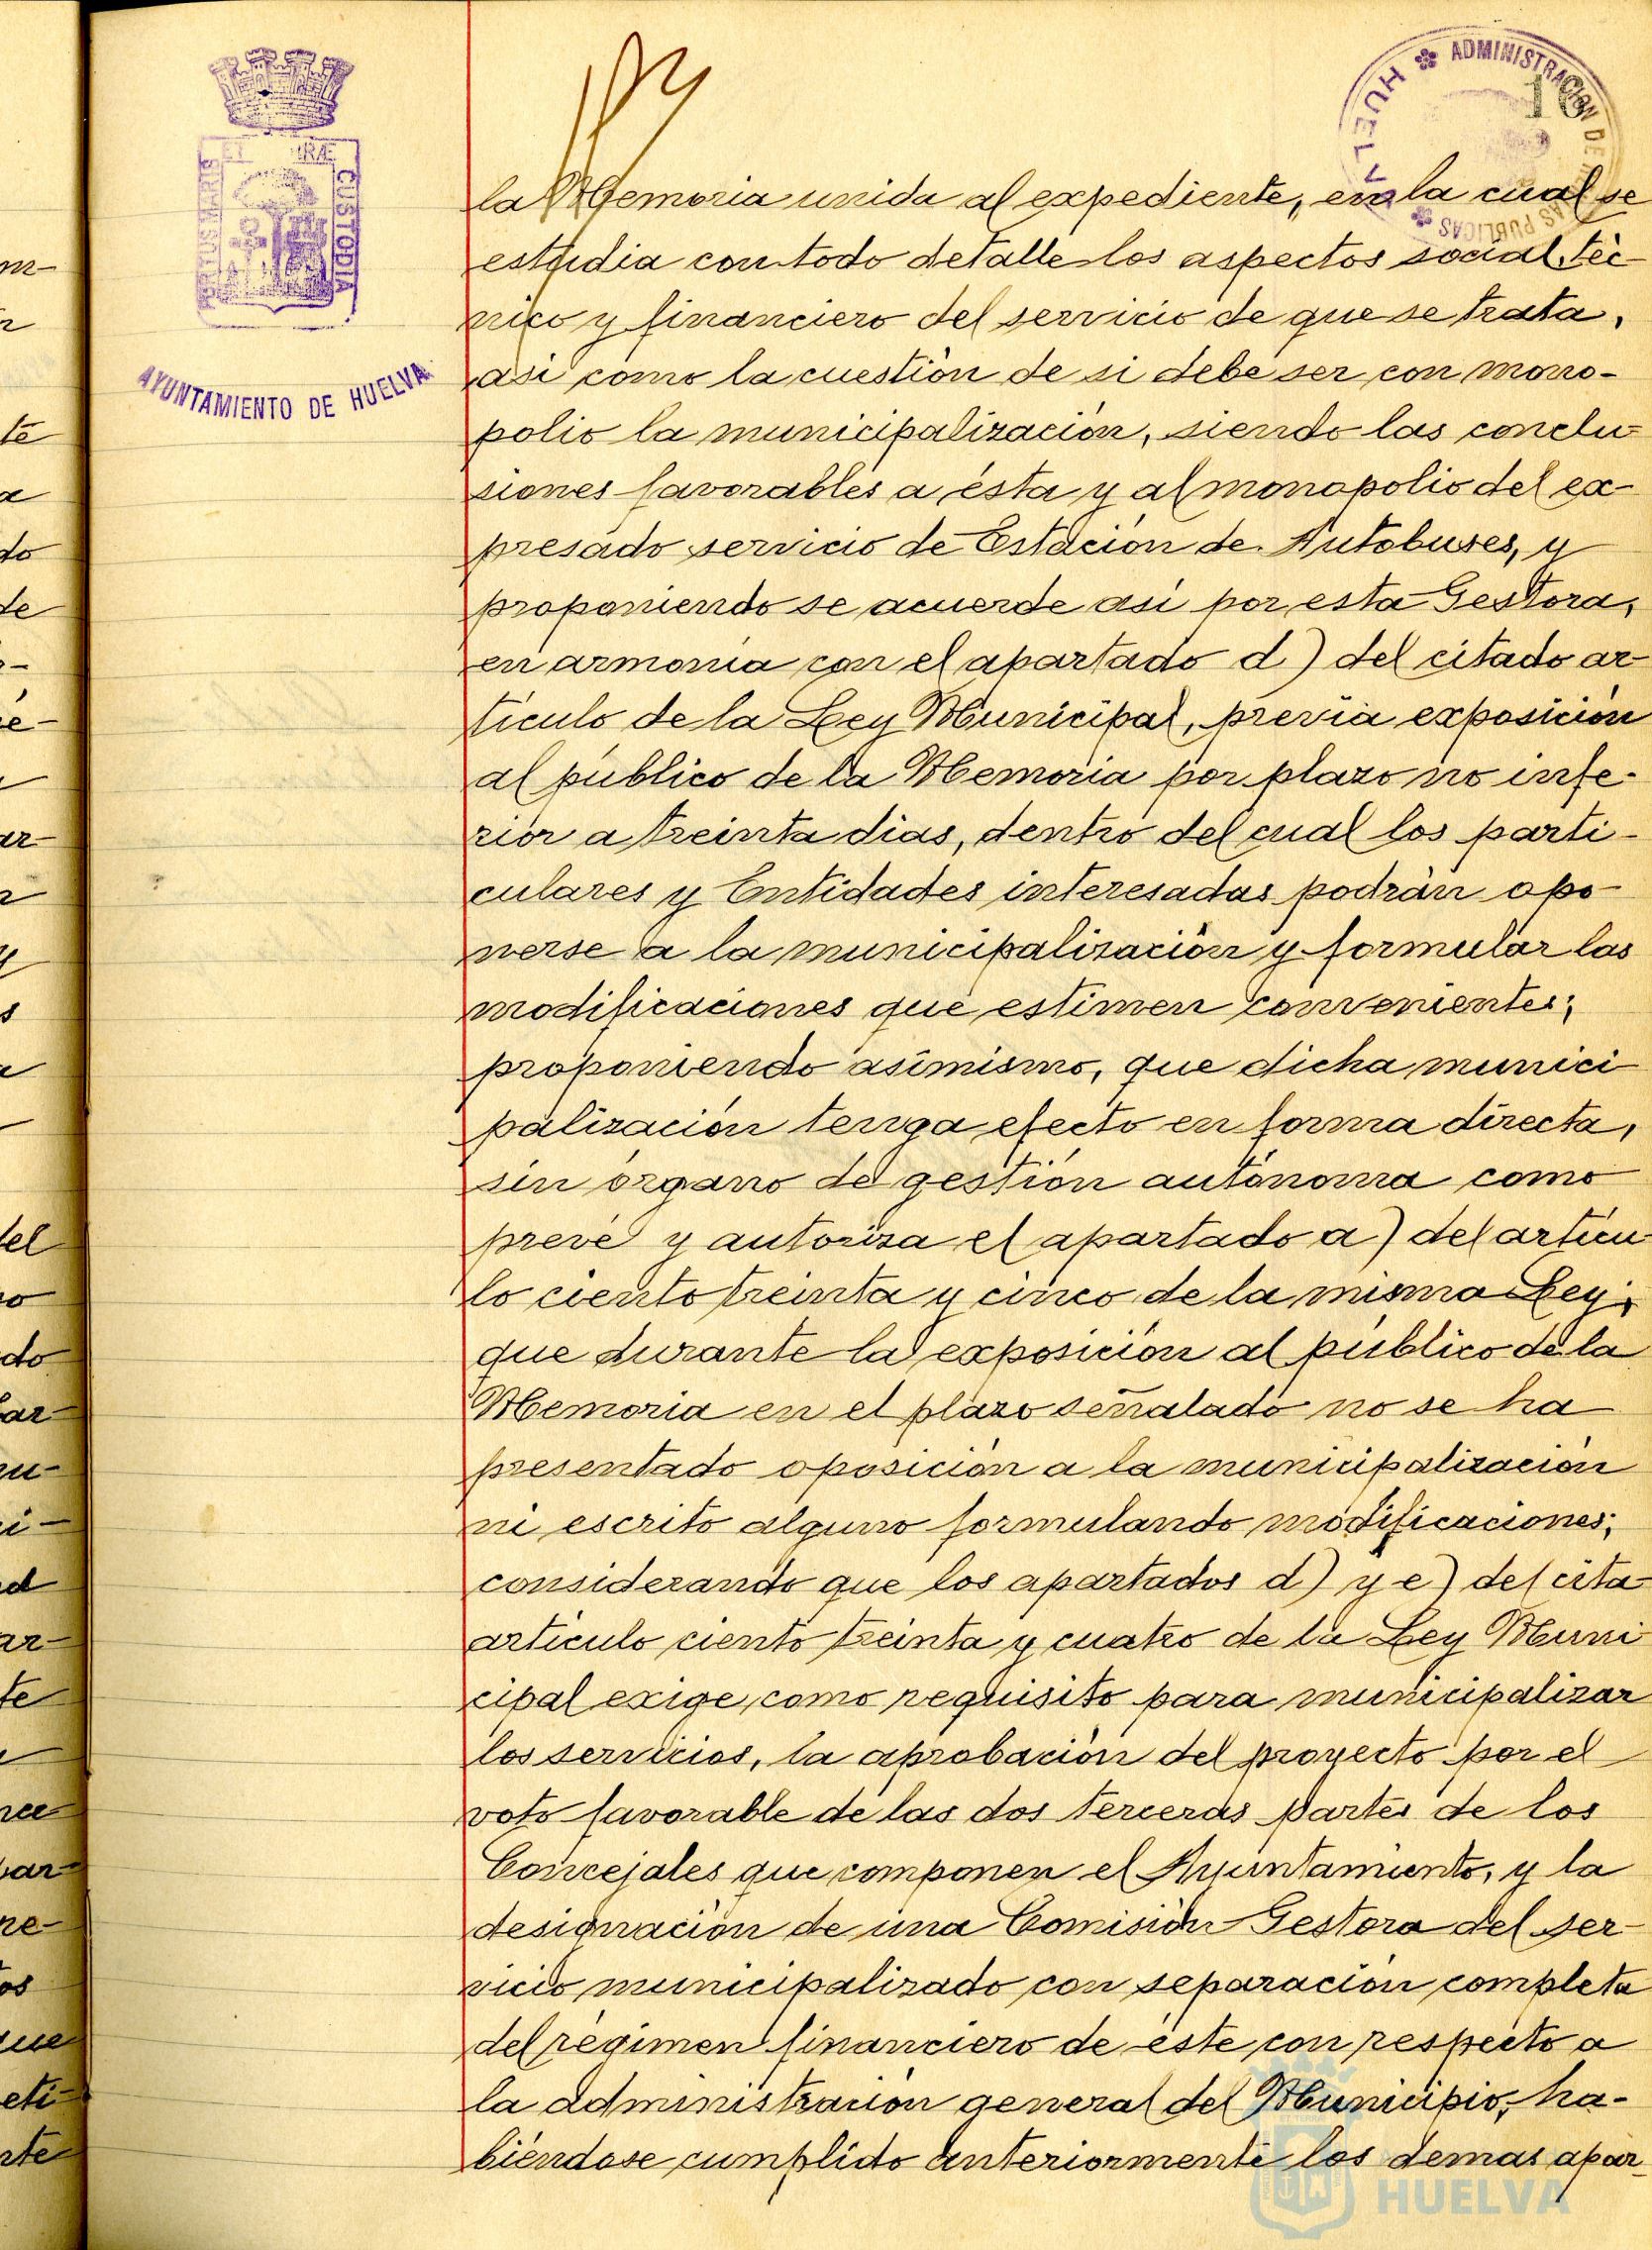 16
ADMINISTRACION DE RENTAS PUBLICAS
HUELVA
PORTUS MARIS ET TERRÆ CUSTODIA
AYUNTAMIENTO DE HUELVA
la Memoria unida al expediente, en la cual se
estudia con todo detalle los aspectos social, téc-
nico y financiero del servicio de que se trata,
asi como la cuestión de si debe ser con mono-
polio la municipalización, siendo las conclu-
siones favorables a ésta y al monopolio del ex-
presado servicio de Estación de Autobuses, y
proponiendo se acuerde asi por esta Gestora,
en armonia con el apartado d) del citado ar-
tículo de la Ley Municipal, previa exposición
al público de la Memoria por plazo no infe-
rior a treinta dias, dentro del cual los parti-
culares y Entidades interesadas podrán opo-
nerse a la municipalización y formular las
modificaciones que estimen convenientes;
proponiendo asimismo, que dicha munici
palización tenga efecto en forma directa,
sin órgano de gestión autónoma como
prevé y autoriza el apartado a) del artícu-
lo ciento treinta y cinco de la misma Ley;
que durante la exposición al público de la
Memoria en el plazo señalado no se ha
presentado oposición a la municipalización
ni escrito alguno formulando modificaciones;
considerando que los apartados d) y e) del cita-
artículo ciento treinta y cuatro de la Ley Muni
cipal exige, como requisito para municipalizar
los servicios, la aprobación del proyecto por el
voto favorable de las dos terceras partes de los
Concejales que componen el Ayuntamiento, y la
designación de una Comisión Gestora del ser-
vicio municipalizado con separación completa
del régimen financiero de éste con respecto a
la administración general del Municipio, ha-
biéndose cumplido anteriormente los demas apar-
HUELVA